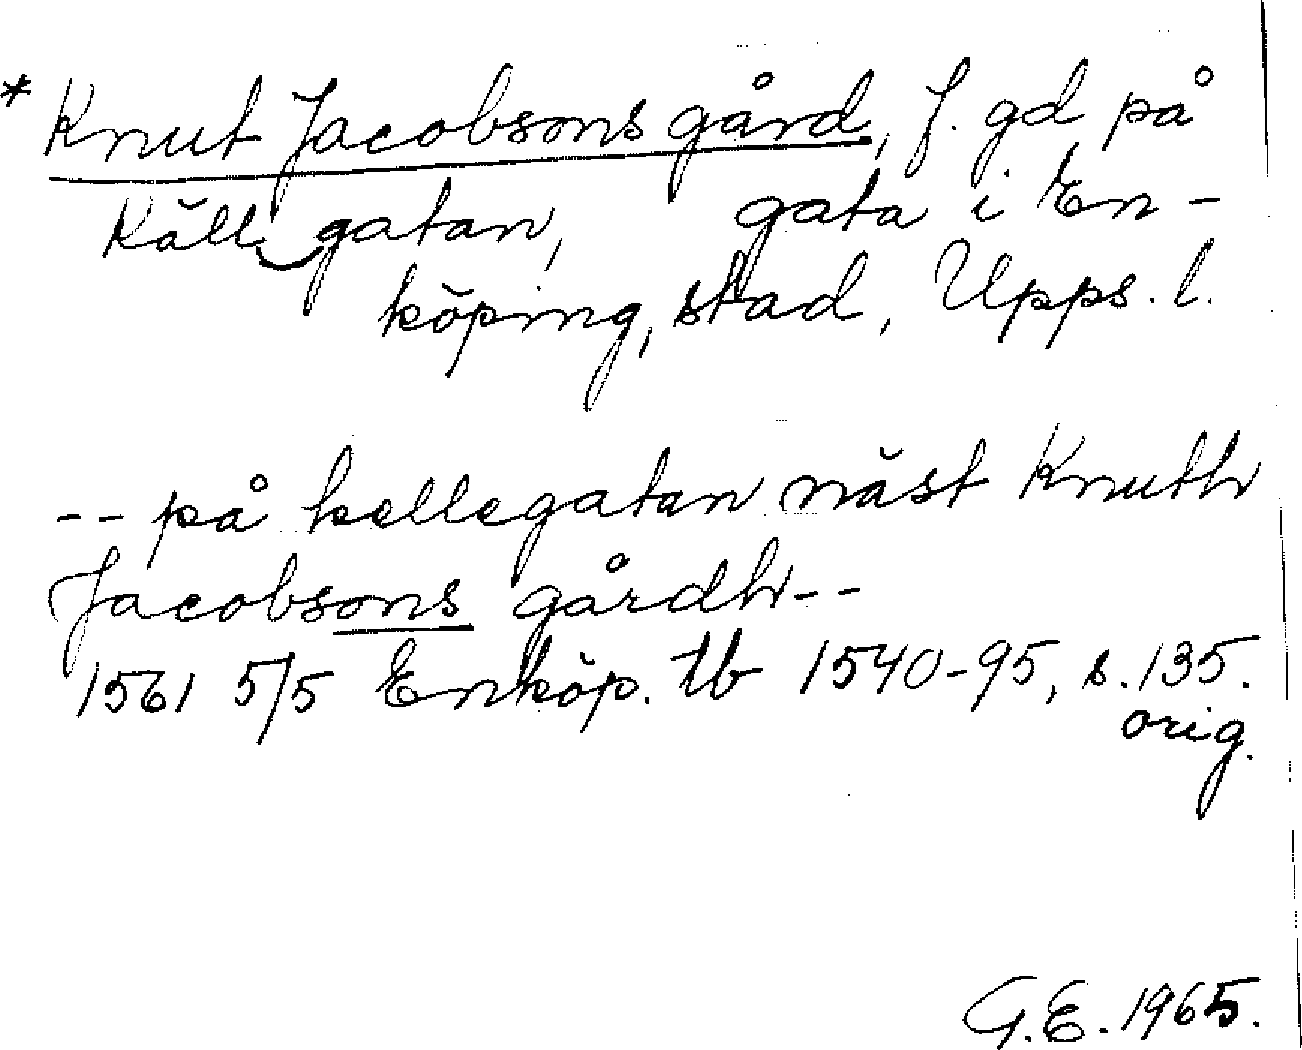 * Knut Jacobsons gård, f. gd på
Källgatan, gata i En-
köping, stad, Upps. l.
-- på kellegatan näst Knuth
Jacobsons gårdh--
1561 5/5 Enköp. tb 1540-95, s. 135.
orig.
G.E. 1965.